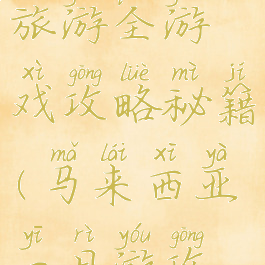 旅游全游
xì gōng lüè mì jí
戏攻略秘籍
mǎ lái xī yà
(马来西亚
yī rì yóu gōng
一日游攻